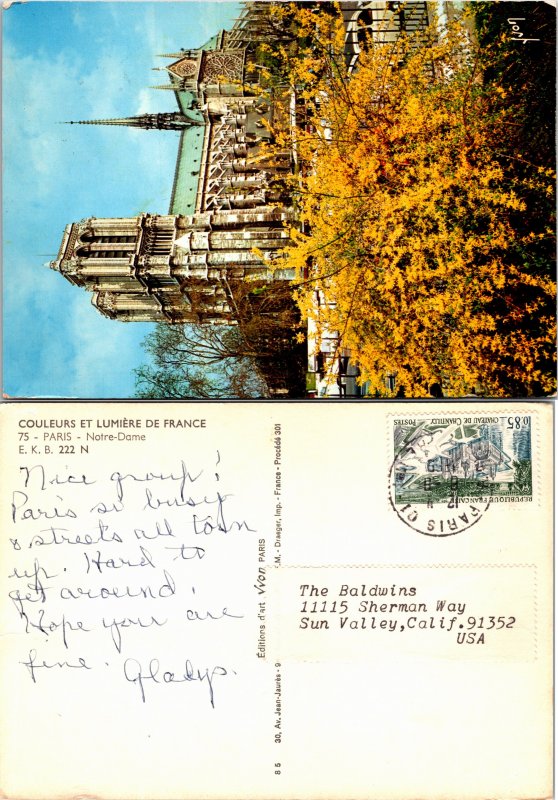 yvon
COULEURS ET LUMIÈRE DE FRANCE
75 - PARIS - Notre-Dame
E. K. B. 222 N
Nice group!
Paris so busy
& streets all torn
up. Hard to
get around.
Hope your are
fine. Gladys.
8 5 30, Av. Jean-Jaurès - 9
.M. - Draeger, Imp. - France - Procédé 301
Editions d'art YVON PARIS
0,85
CHATEAU DE CHANTILLY
POSTES
REPUBLIQUE FRANÇAISE
PARIS
The Baldwins
11115 Sherman Way
Sun Valley,Calif.91352
USA